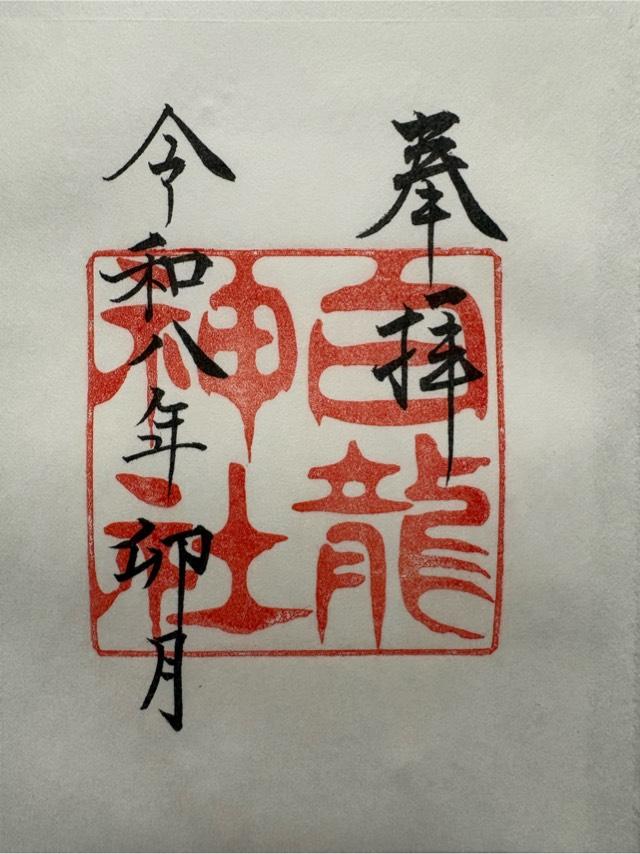 奉拝
白龍
神社
令和八年卯月